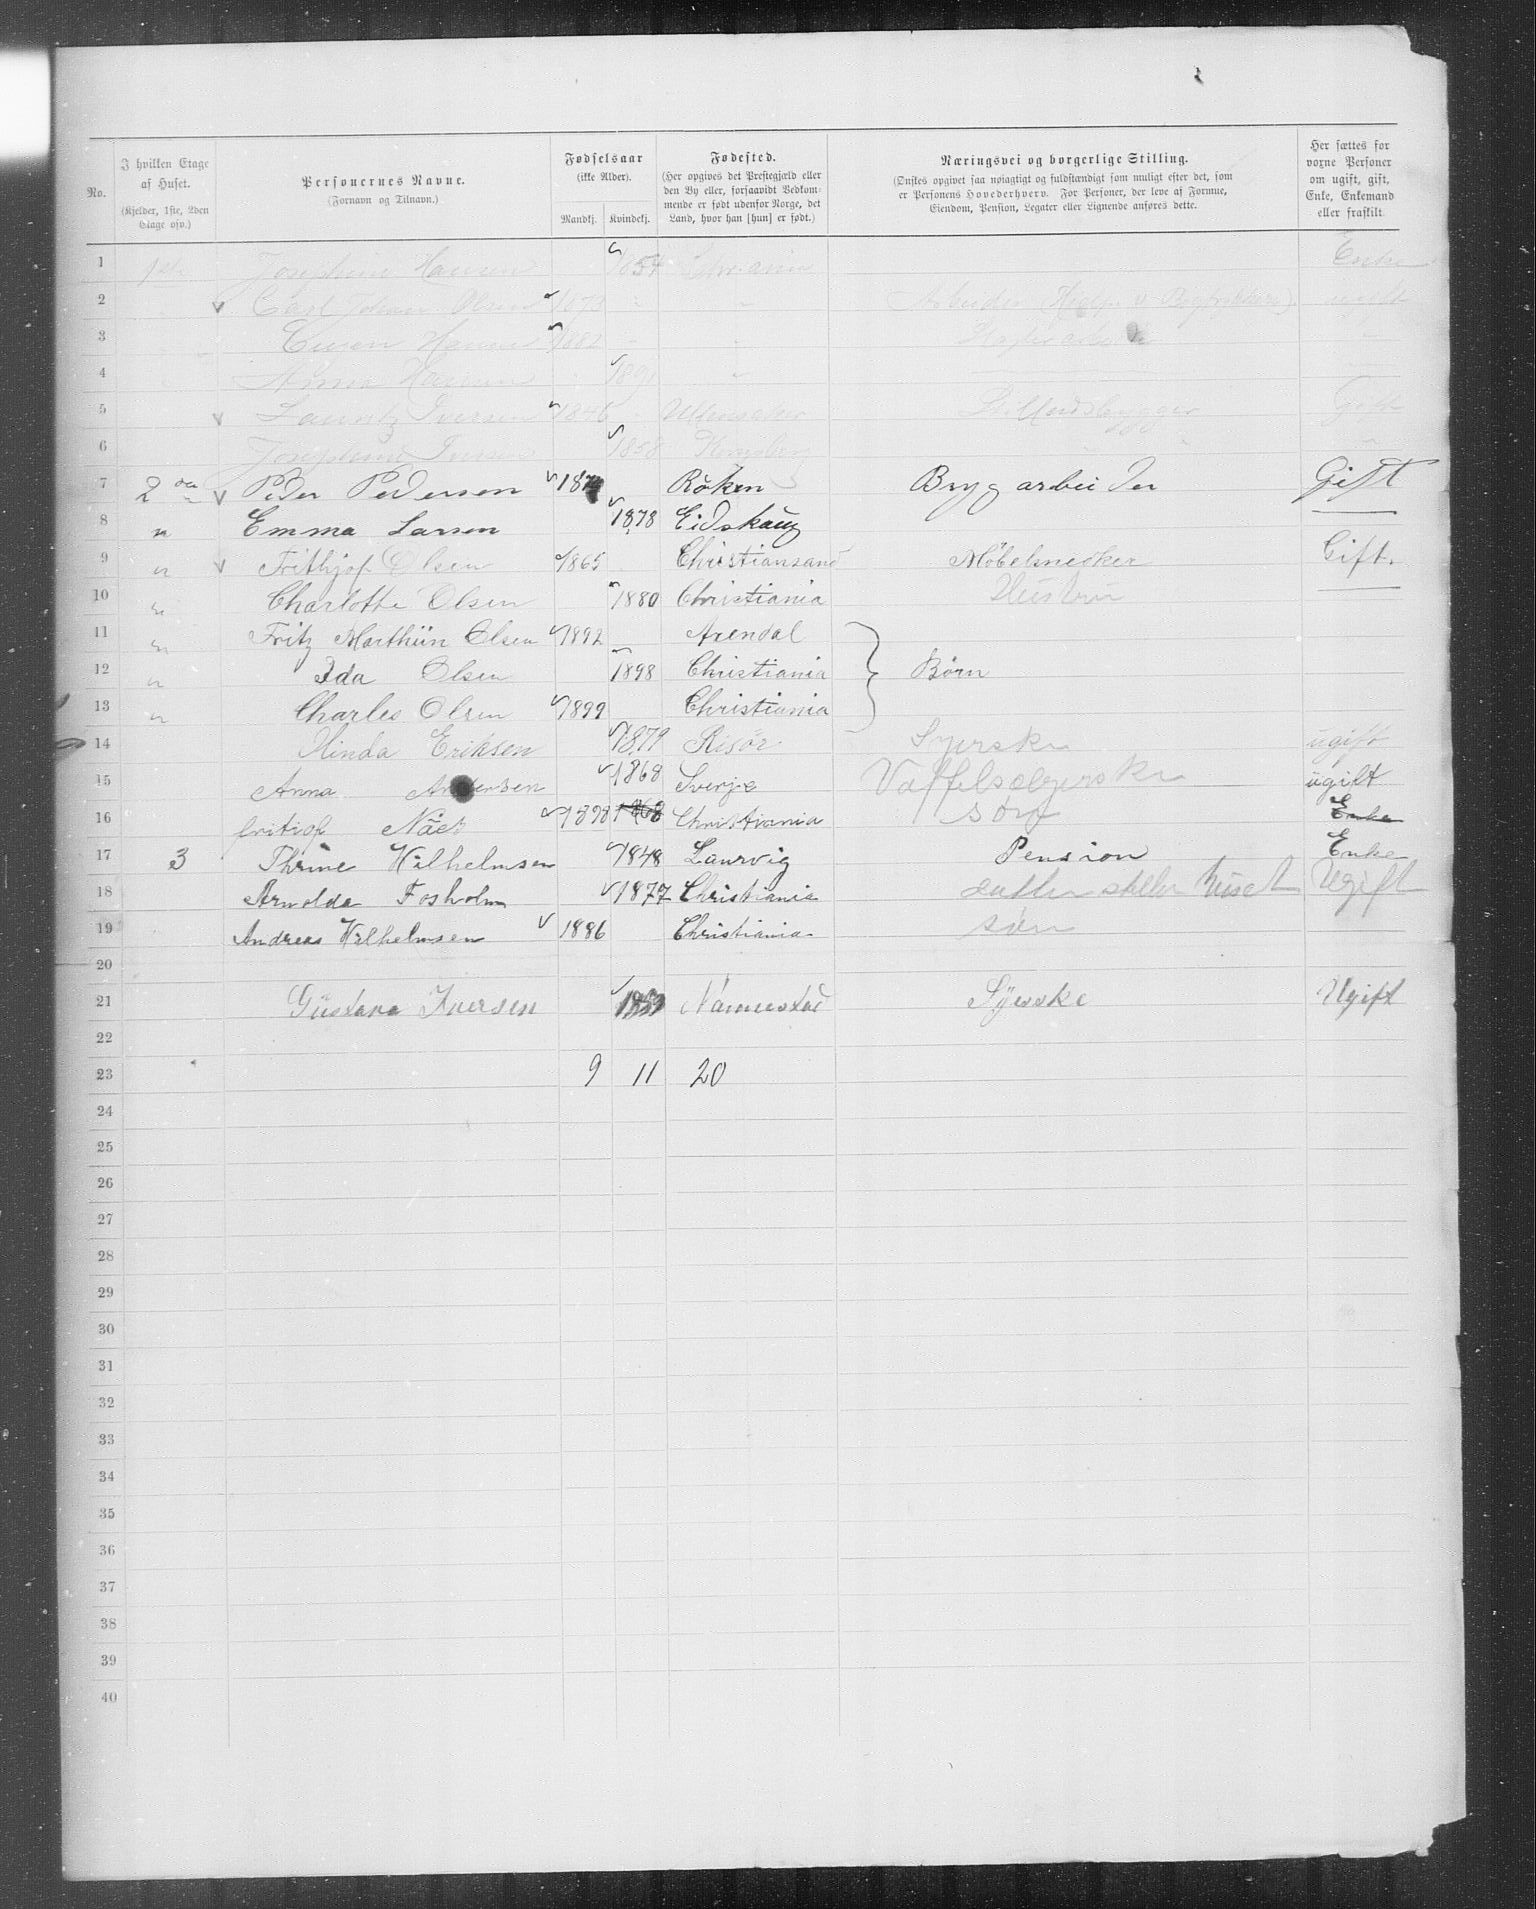 No.
I hvilken Etage af Huset. (Kjelder, 1ste, 2den Etage osv.)
Personernes Navne. (Fornavn og Tilnavn.)
Fødselsaar (ikke Alder). Mandkj. Kvindekj.
Fødested. (Her opgives det Prestegjæld eller den By eller, forsaavidt Vedkommende er født udenfor Norge, det Land, hvor han [hun] er født.)
Næringsvei og borgerlige Stilling. (Ønskes opgivet saa nøiagtigt og fuldstændigt som muligt efter det, som er Personens Hovederhverv. For Personer, der leve af Formue, Eiendom, Pension, Legater eller Lignende anføres dette.
Her sættes for voxne Personer om ugift, gift, Enke, Enkemand eller fraskilt.
1 1ste Josephine Hansen 1854 Enke
2 Carl Johan Olsen 1873 - " Arbeider ugift
3 Hansen 1882 - "
4 Anna Hansen 1891 "
5 Lauritz Iversen 1846 Ullensaker Gift
6 Josephine Iversen 1858 Kongsberg "
7 2den Peder Pedersen Röken Brygarbeider Gift
8 " Emma Larsen 1878 Eidskaug —
9 " Frithjof Olsen 1865 Christiansand Møbelsnedker Gift.
10 " Charlotte Olsen 1880 Christiania Hustru —
11 " Fritz Marthiin Olsen 1892 Arendal
12 " Ida Olsen 1898 Christiania } Børn
13 " Charles Olsen 1899 Christiania
14 Hinda Eriksen 1879 Risör Syerske ugift
15 Anna Andersen 1868 Sverje Vaffelselgerske ugift
16 fritiof Näes 1898 1868 Christiania Enke
17 3 Thrine Wilhelmsen 1848 Laurvig Pension Enke
18 Arnolda Fosholm 1877 Christiania steller huset Ugift
19 Andreas Wilhelmsen 1886 Christiania søn
20
21 Güstava Iversen Nannestad Syerske Ugift
22
23 9 11 20
24
25
26
27
28
29
30
31
32
33
34
35
36
37
38
39
40